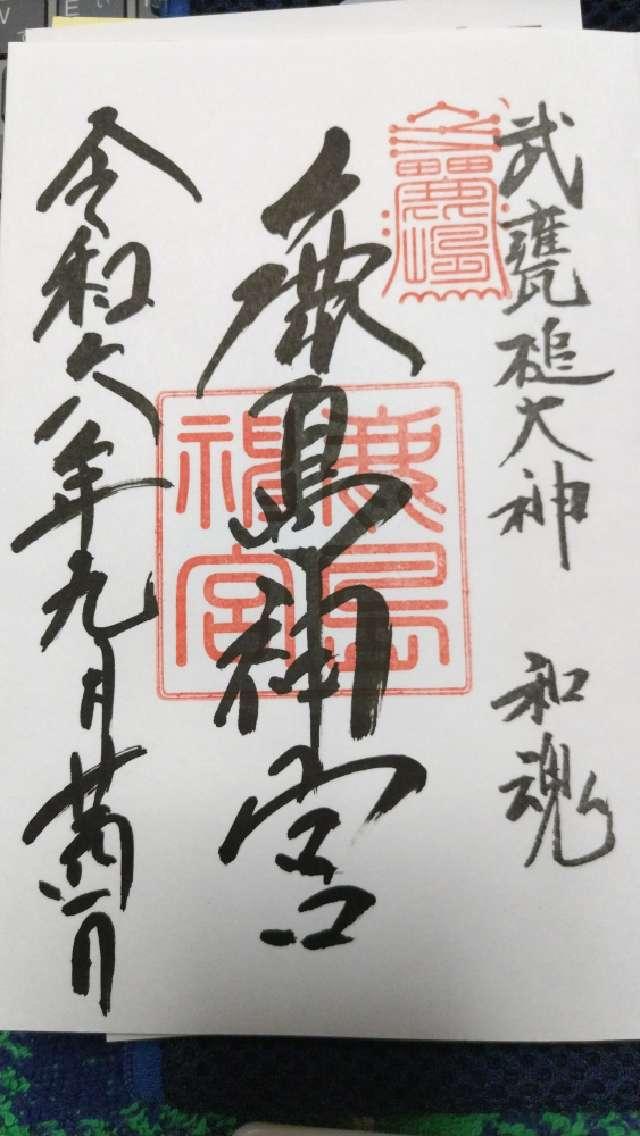 武甕槌大神 和魂
鹿島神宮
鹿島神宮
令和六年九月